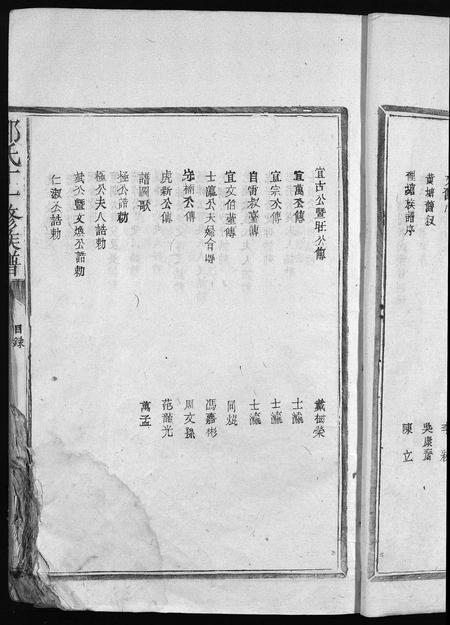 黃塘舊叙 吳康齋
族譜序 陳立
宜古公暨壯公傳 戴㭴榮
宜萬公傳 士瀛
宜宗公傳 士瀛
自雷叔臺傳 士瀛
宜文伯兹傳 同
士瀛公夫婦合 馮嘉彬
楠公傳 周文孫
虎新公傳 范光
譜圖歌 萬孟
極公誥勅
極公夫人誥勅
公暨文煥公誥勅
仁淑公誥勅
氏修族譜
目錄